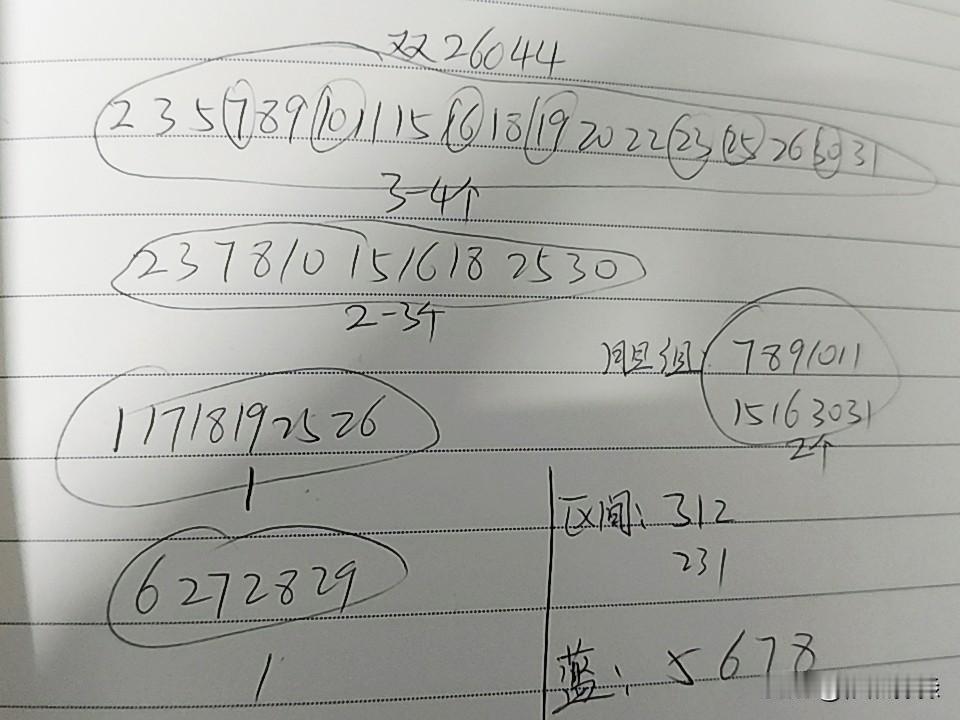 双26044
2 3 5 7 8 9 10 11 15 16 18 19 20 22 23 25 26 30 31
3-4个
2 3 7 8 10 15 16 18 25 30
2-3个
胆组: 7 8 9 10 11
15 16 30 31
2个
1 17 18 19 25 26
1
区间: 312
231
6 27 28 29
1
蓝: 5 6 7 8